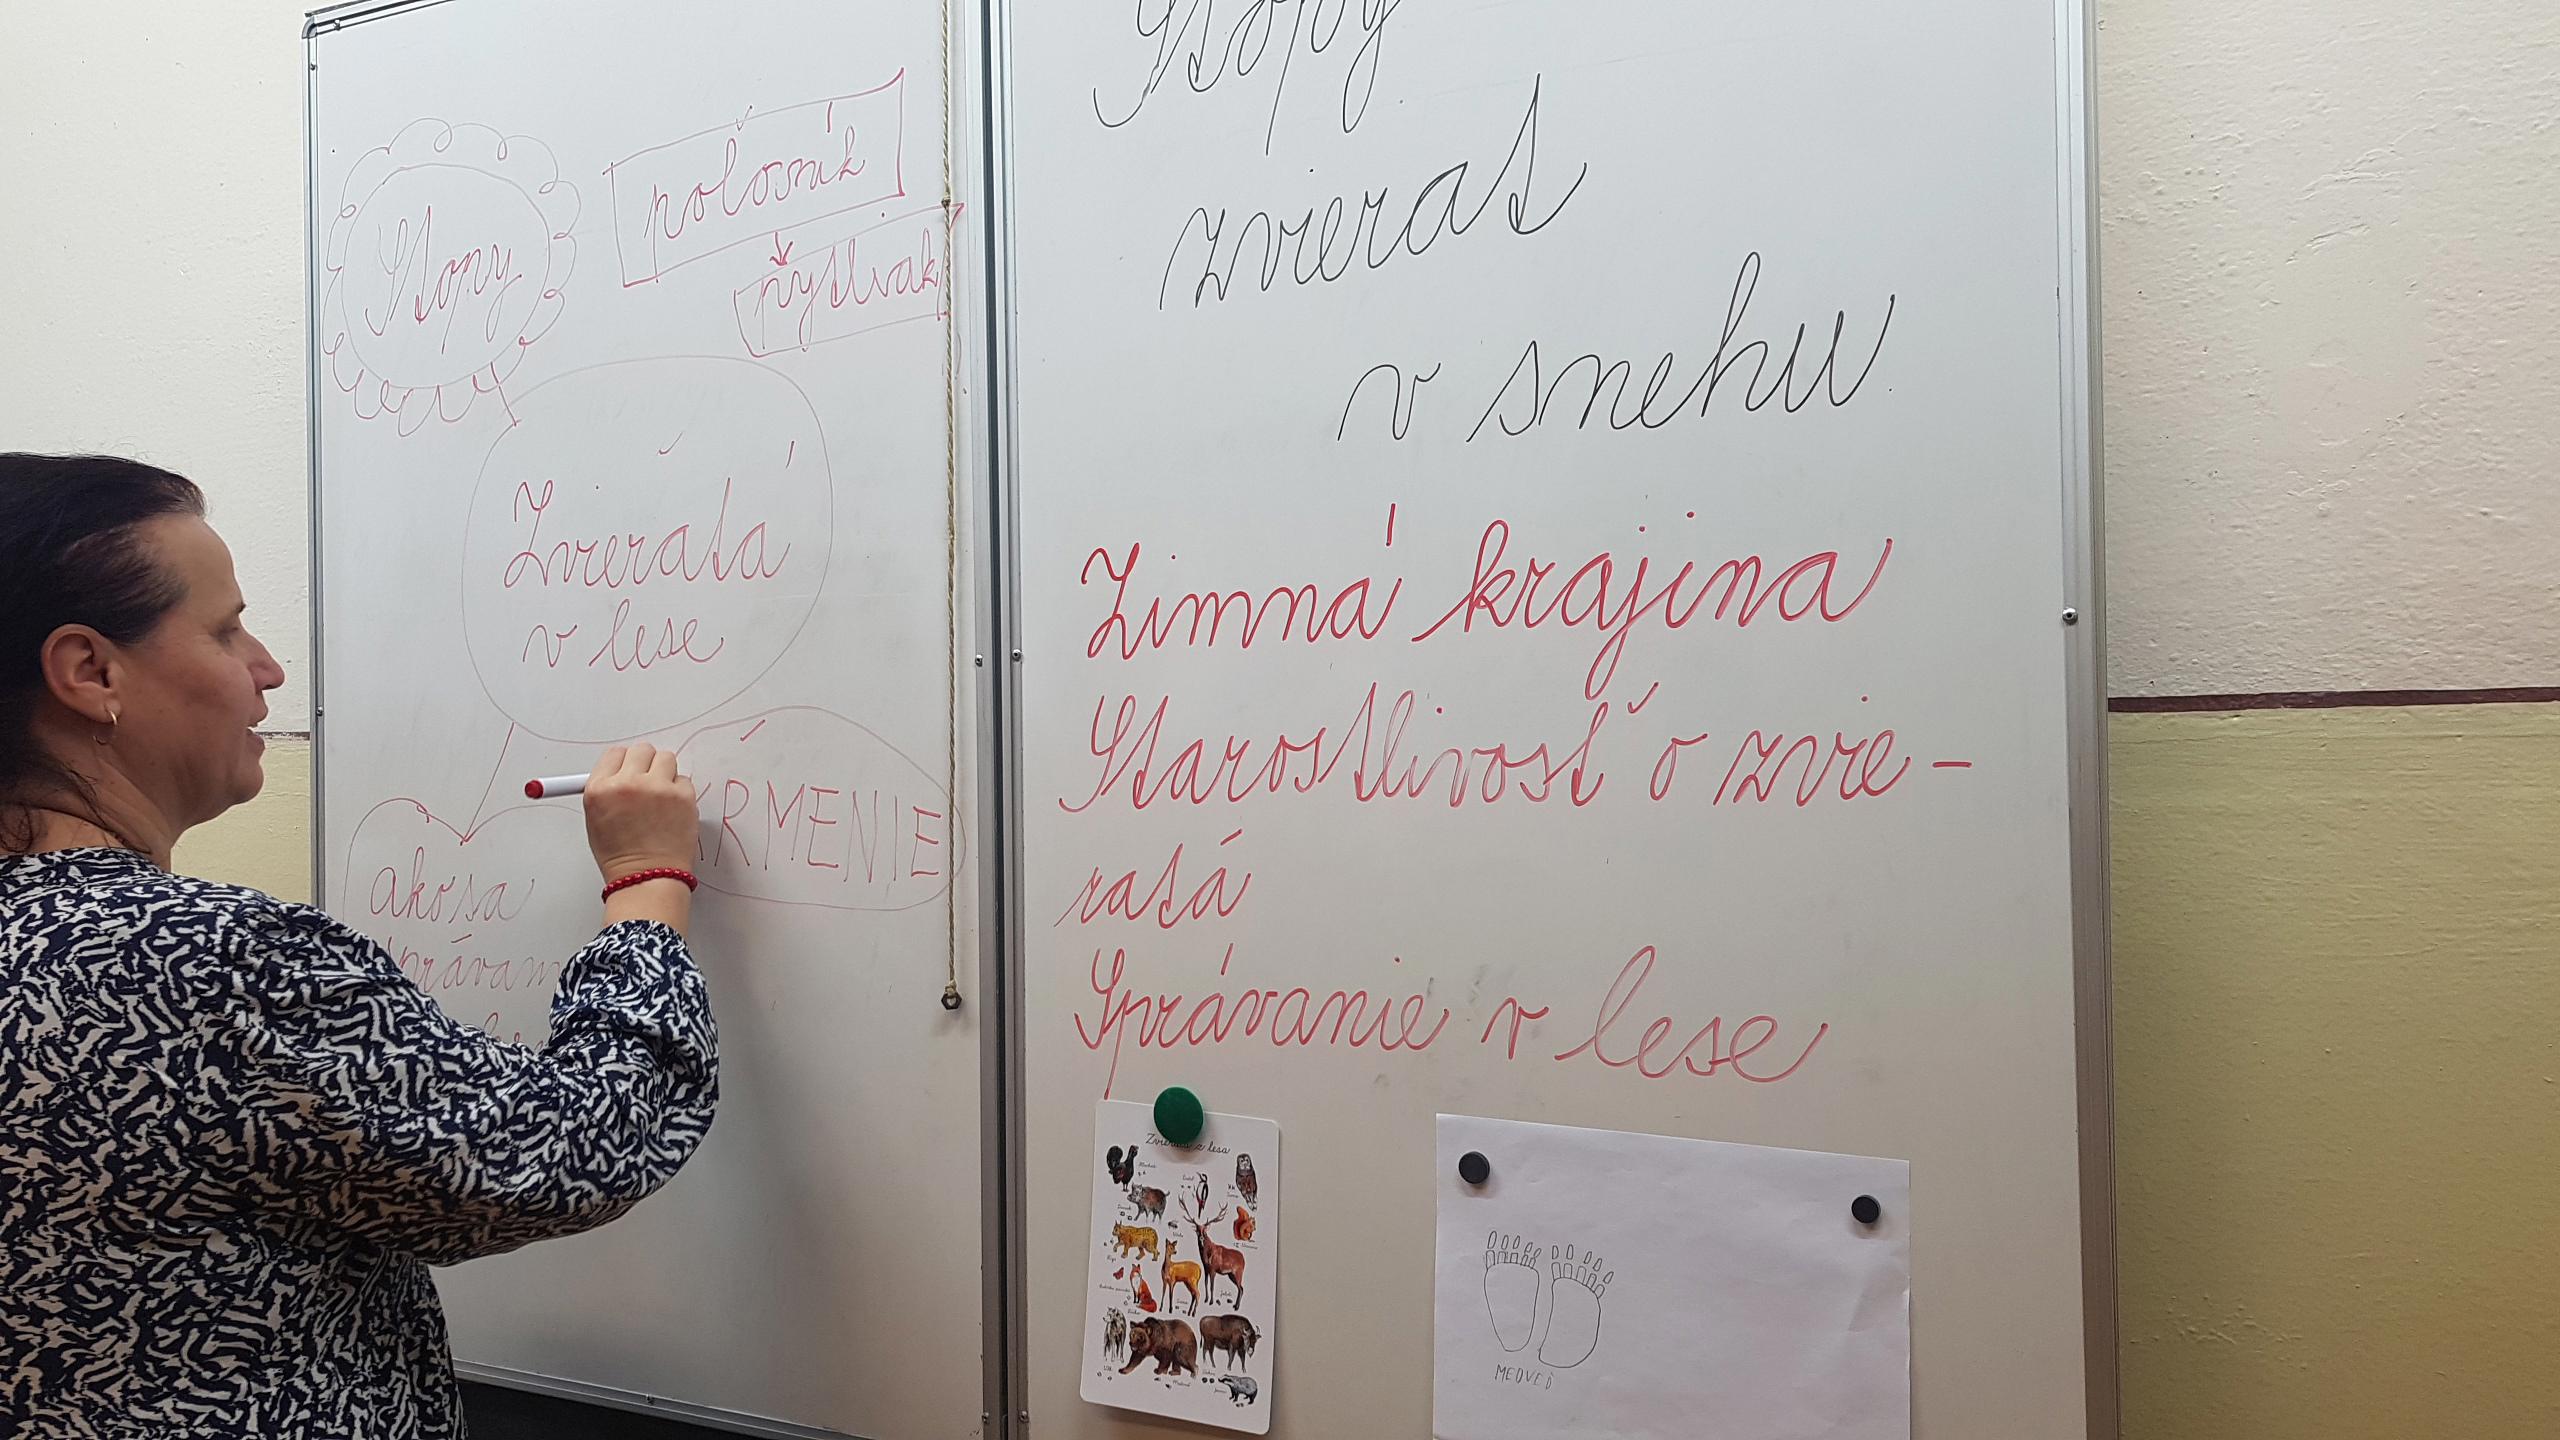 Stopy
poľovník
pytliak
Zvieratá
v lese
KŔMENIE
ako sa
Stopy
zvierat
v snehu
Zimná krajina
Starostlivosť o zvie-
ratá
Správanie v lese
z lesa
MEDVEĎ